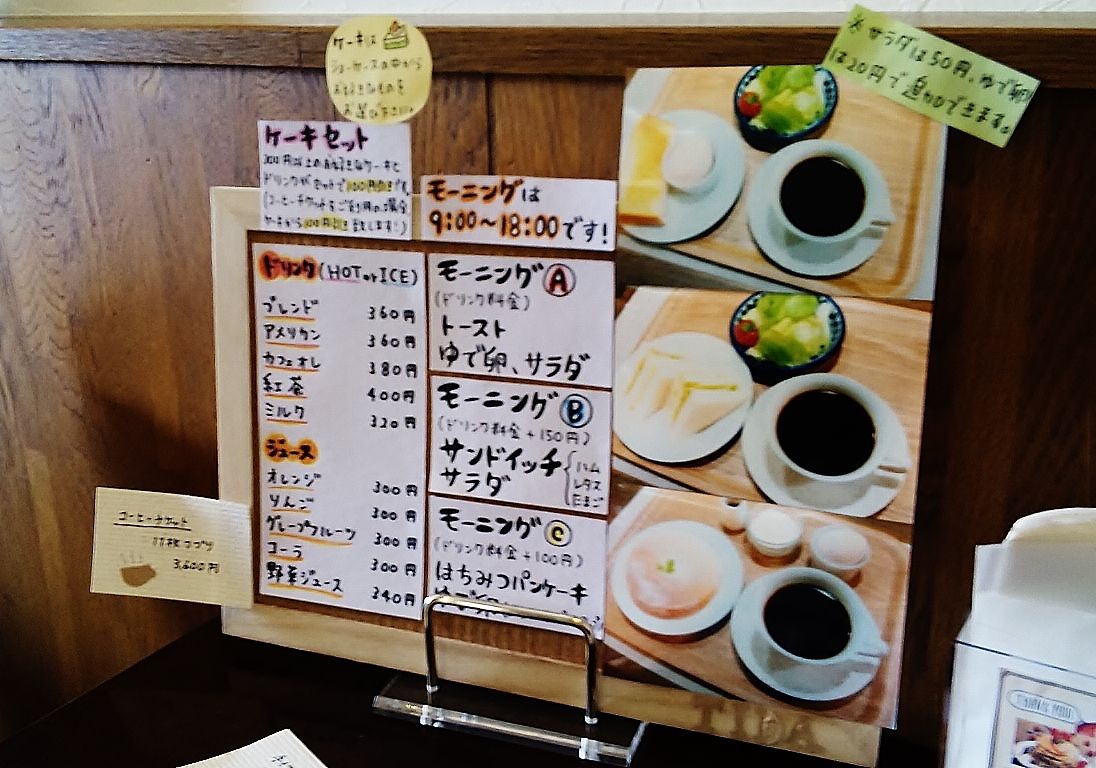 ケーキは
ショーケースの中から
お好きなものを
お選び下さい
※サラダは50円、ゆで卵
は20円で追加できます。
ケーキセット
300円以上のお好きなケーキと
ドリンクがセットで100円引きです。
(コーヒーチケットをご利用の場合
ケーキから100円引き致します!)
モーニングは
9:00〜18:00です!
ドリンク(HOT or ICE)
ブレンド 360円
アメリカン 360円
カフェオレ 380円
紅茶 400円
ミルク 320円
ジュース
オレンジ 300円
りんご 300円
グレープフルーツ 300円
コーラ 300円
野菜ジュース 340円
モーニングA
(ドリンク料金)
トースト
ゆで卵、サラダ
モーニングB
(ドリンク料金+150円)
サンドイッチ
サラダ
ハム
レタス
たまご
モーニングC
(ドリンク料金+100円)
はちみつパンケーキ
ゆで卵
コーヒーチケット
11枚つづり
3,600円